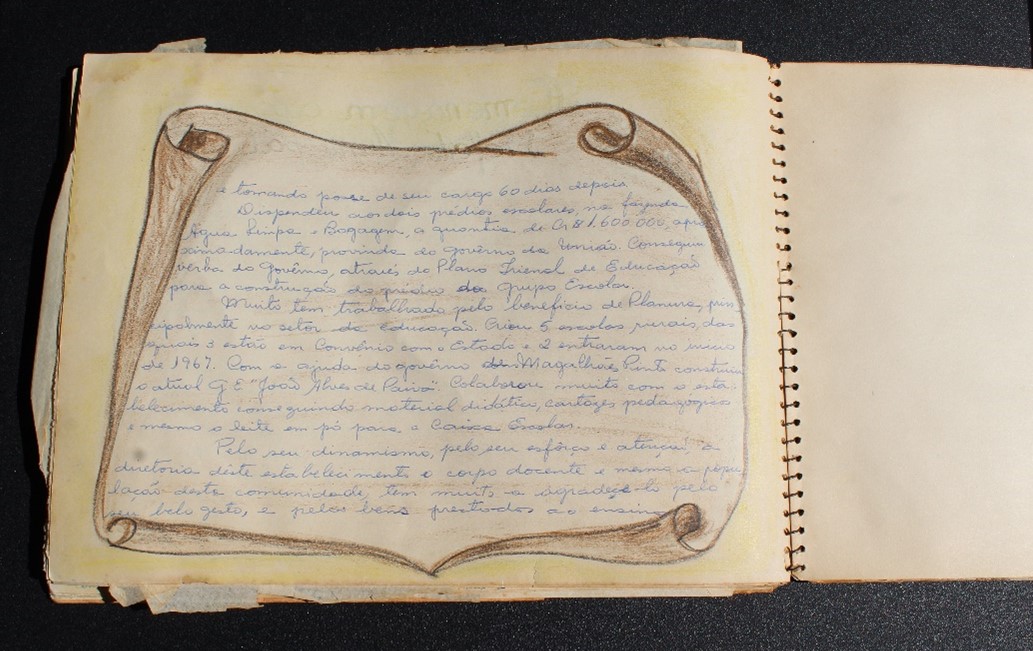 e tomando posse de seu cargo 60 dias depois
Dispendeu aos dois prédios escolares, na fazenda
Água Limpa e Bagagem, a quantia de Cr$ 1.600.000, apro
ximadamente, provinda do govêrno da União. Conseguiu
verba do Govêrno, através do Plano Trienal de Educação
para a construção do prédio do Grupo Escolar.
Muito tem trabalhado pelo benefício de Planura, prin
cipalmente no setor da educação. Criou 5 escolas rurais, das
quais 3 estão em Convênio com o Estado e 2 entraram no início
de 1967. Com a ajuda do govêrno Magalhães Pinto construiu
o atual G E "João Alves de Paiva". Colaborou muito com o esta-
belecimento conseguindo material didático, cartazes pedagógico
e mesmo o leite em pó para a Caixa Escolar.
Pelo seu dinamismo, pelo seu esfôrço e atenção, a
diretoria dêste estabelecimento o corpo docente e mesmo a popu
lação desta comunidade, tem muito a agradecê-lo pelo
seu belo gesto, e pelos bens prestados ao ensino